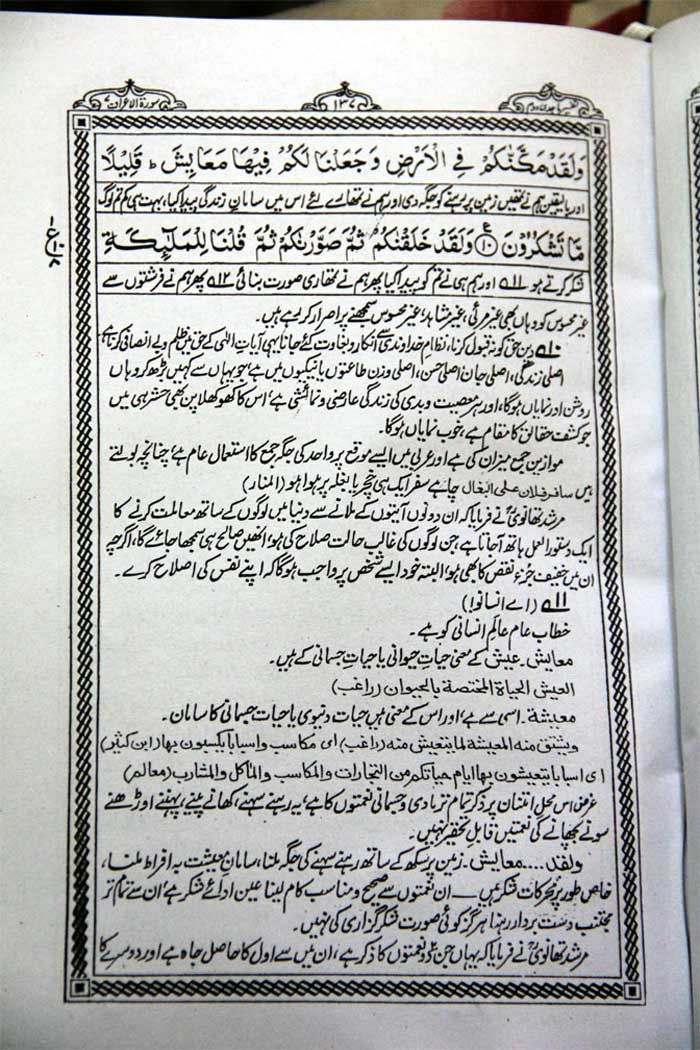 تفسیر ماجدی دوم
۱۳۷
سورۃ الاعراف ۷
وَلَقَدْ مَكَّنّٰكُمْ فِی الْاَرْضِ وَجَعَلْنَا لَكُمْ فِیْهَا مَعَایِشَ ؕ قَلِیْلًا
اور بالیقین ہم نے تمھیں زمین پر رہنے کو جگہ دی اور ہم نے تمھارے لئے اس میں سامان زندگی پیدا کیا، بہت ہی کم تم لوگ
مَّا تَشْكُرُوْنَ ۝۱۰ وَلَقَدْ خَلَقْنٰكُمْ ثُمَّ صَوَّرْنٰكُمْ ثُمَّ قُلْنَا لِلْمَلٰٓئِكَةِ
شکر کرتے ہو ۱۱ اور ہم ہی نے تم کو پیدا کیا پھر ہم نے تمھاری صورت بنائی ۱۲ پھر ہم نے فرشتوں سے
غیر محسوس کو وہاں بھی غیر مرئی، غیر مشاہد، غیر محسوس سمجھنے پر اصرار کر رہے ہیں۔
۱۰ دین حق کو نہ قبول کرنا، نظام خداوندی سے انکار و بغاوت کئے جانا یہی آیات الٰہی کے حق میں ظلم و بے انصافی کرنا ہے
اصلی زندگی، اصلی جان اصلی حسن، اصلی وزن طاعتوں یا نیکیوں میں ہے، جو یہاں سے کہیں بڑھ کر وہاں
روشن اور نمایاں ہوگا، اور ہر معصیت و بدی کی زندگی عارضی و نمائشی ہے، اس کا کھوکھلا پن بھی حشر ہی میں
جو کشف حقائق کا مقام ہے، خوب نمایاں ہوگا۔
موازین جمع میزان کی ہے اور عربی میں ایسے موقع پر واحد کی جگہ جمع کا استعمال عام ہے، چنانچہ بولتے
ہیں سافر فلان علی البغال چاہے سفر ایک ہی خچر یا بغلہ پر ہوا ہو (المنار)
مرشد تھانویؒ نے فرمایا کہ ان دونوں آیتوں کے ملانے سے دنیا میں لوگوں کے ساتھ معاملت کرنے کا
ایک دستور العمل ہاتھ آجاتا ہے، جن لوگوں کی غالب حالت صلاح کی ہو، انھیں صالح ہی سمجھا جائے گا، اگرچہ
ان میں خفیف جزء نقص کا بھی ہو، البتہ خود ایسے شخص پر واجب ہوگا کہ اپنے نفس کی اصلاح کرے۔
۱۱ (اے انسانو!)
خطاب عام عالم انسانی کو ہے۔
معایش۔ عیش کے معنی حیات حیوانی یا حیات جسمانی کے ہیں۔
العیش الحیاۃ المختصۃ بالحیوان (راغب)
معیشۃ۔ اسی سے ہے، اور اس کے معنی ہیں حیات دنیوی یا حیات جسمانی کا سامان۔
ویشتق منہ المعیشۃ لما یتعیش منہ (راغب) ای مکاسب و اسبابا یکسبون بہا (ابن کثیر)
ای اسبابا یتعیشون بہا ایام حیاتکم من التجارات والمکاسب والمآکل والمشارب (معالم)
غرض اس محل امتنان پر ذکر تمام تر مادی و جسمانی نعمتوں کا ہے، یہ رہنے سہنے، کھانے پینے، پہننے اوڑھنے
سونے بچھانے کی نعمتیں قابل تحقیر نہیں۔
ولقد.... معایش۔ زمین پر سکھ کے ساتھ رہنے سہنے کی جگہ ملنا، سامان معیشت بہ افراط ملنا،
خاص طور پر محرکات شکر ہیں — ان نعمتوں سے صحیح و مناسب کام لینا عین ادائے شکر ہے، ان سے تمام تر
مجتنب دست بردار رہنا ہرگز کوئی صورت شکر گذاری کی نہیں۔
مرشد تھانویؒ نے فرمایا کہ یہاں جن دو نعمتوں کا ذکر ہے، ان میں سے اول کا حاصل جاہ ہے اور دوسرے کا